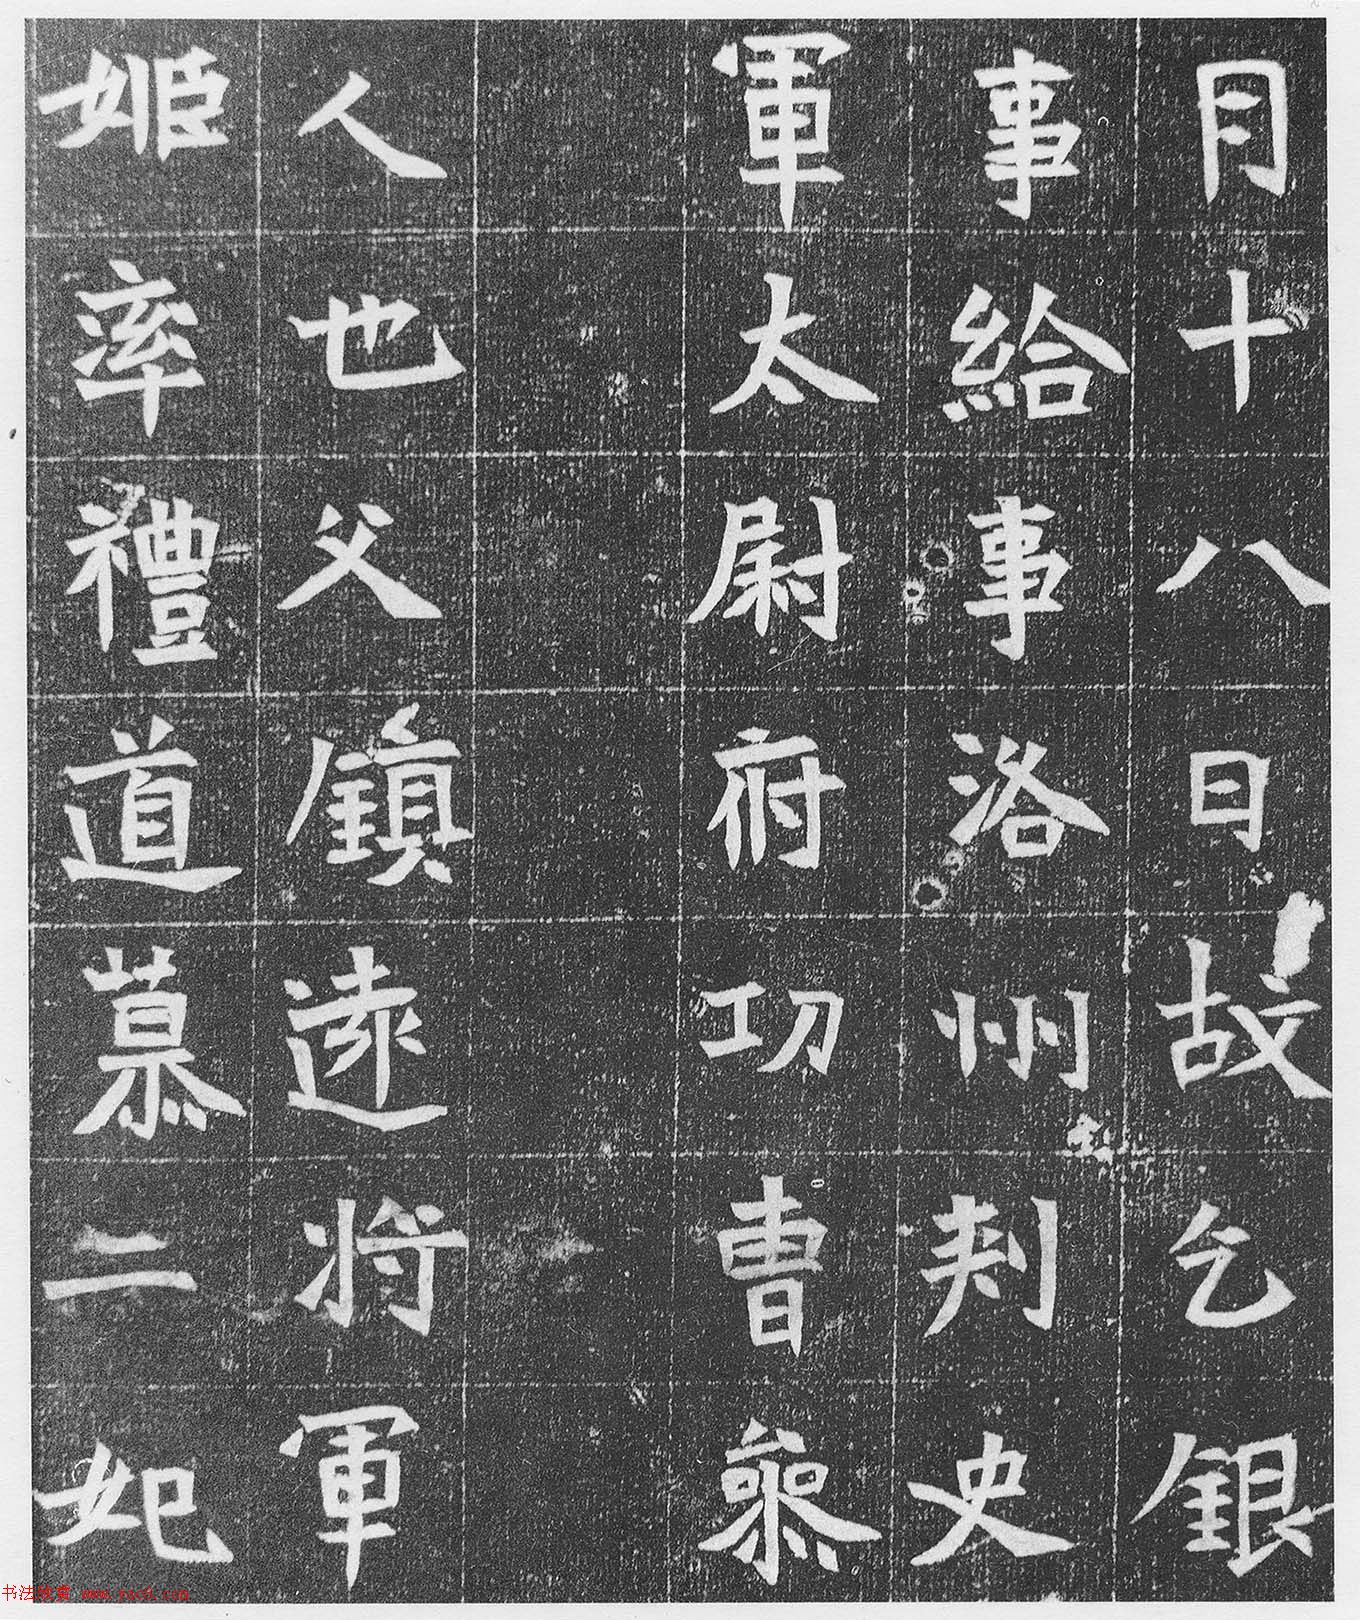 月十八日故乞銀
事給事洛州刾史
軍太尉府功曹叅
人也父鎮遠将軍
姬率禮道慕二妃
书法欣赏 www.yac8.com